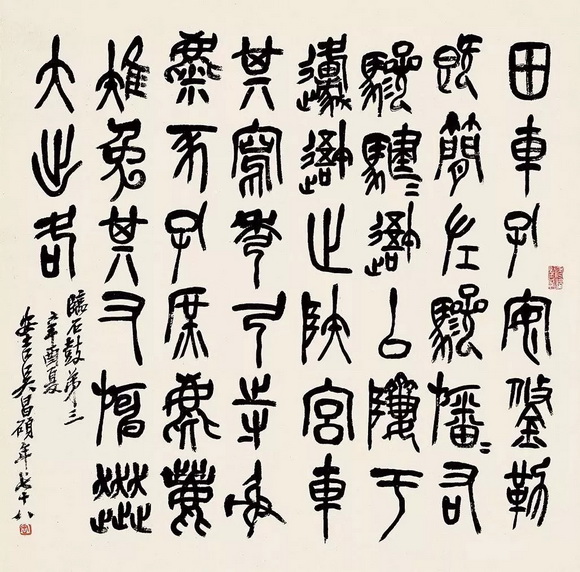 田車孔安鋚勒
既簡左驂旛=右
驂騝=䢔以隮于
邍䢔止陝宮車
其寫秀弓寺射
麋豕孔庶麀鹿
雉兔其又旃奔
大出各
臨石鼓第三
辛酉夏
安吉吳昌碩年七十八